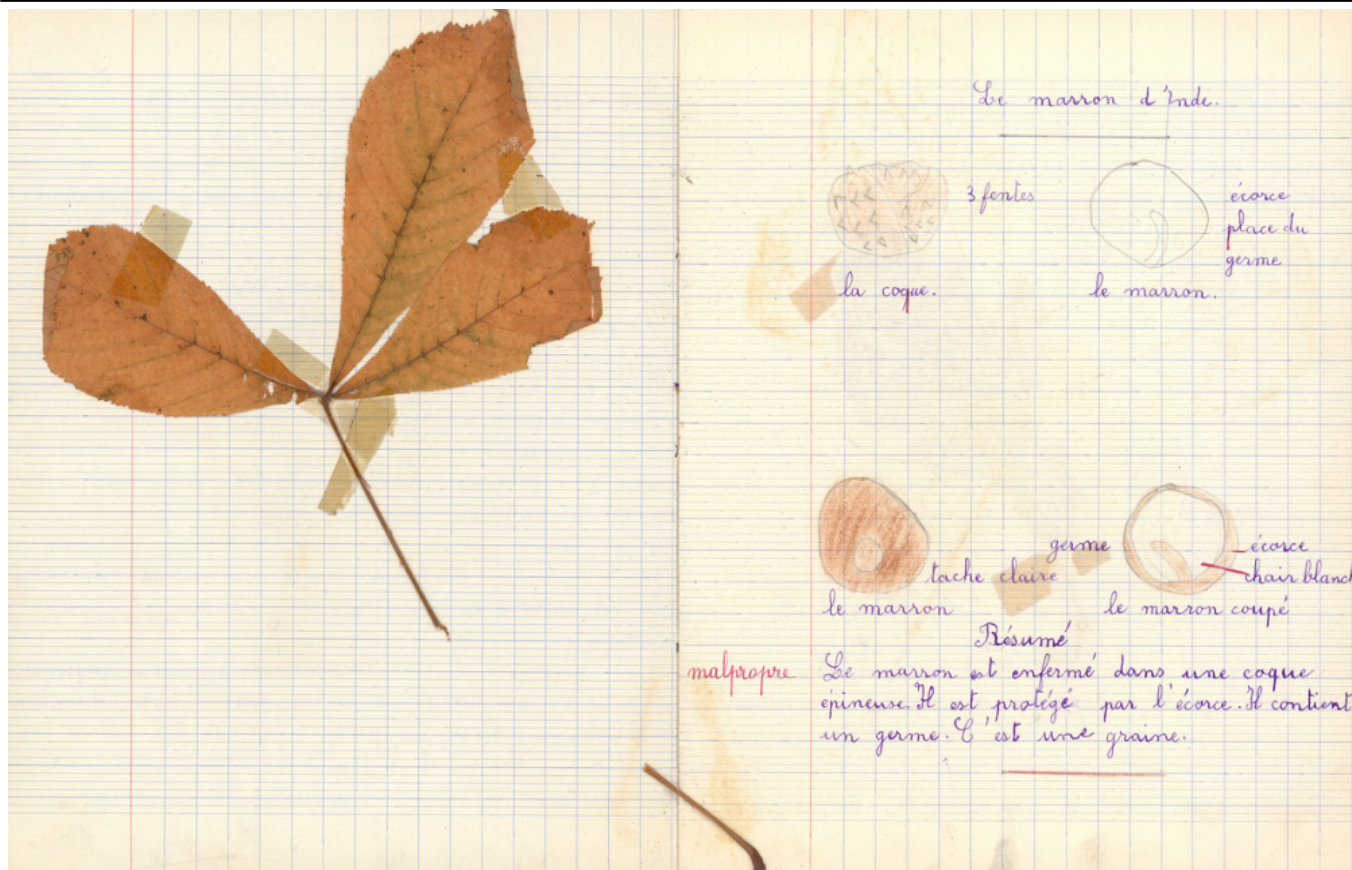 Le marron d'Inde.
3 fentes
écorce
place du
germe
la coque.
le marron.
germe
écorce
tache claire
chair blanc
le marron
le marron coupé
Résumé
malpropre
Le marron est enfermé dans une coque
épineuse. Il est protégé par l'écorce. Il contient
un germe. C'est une graine.